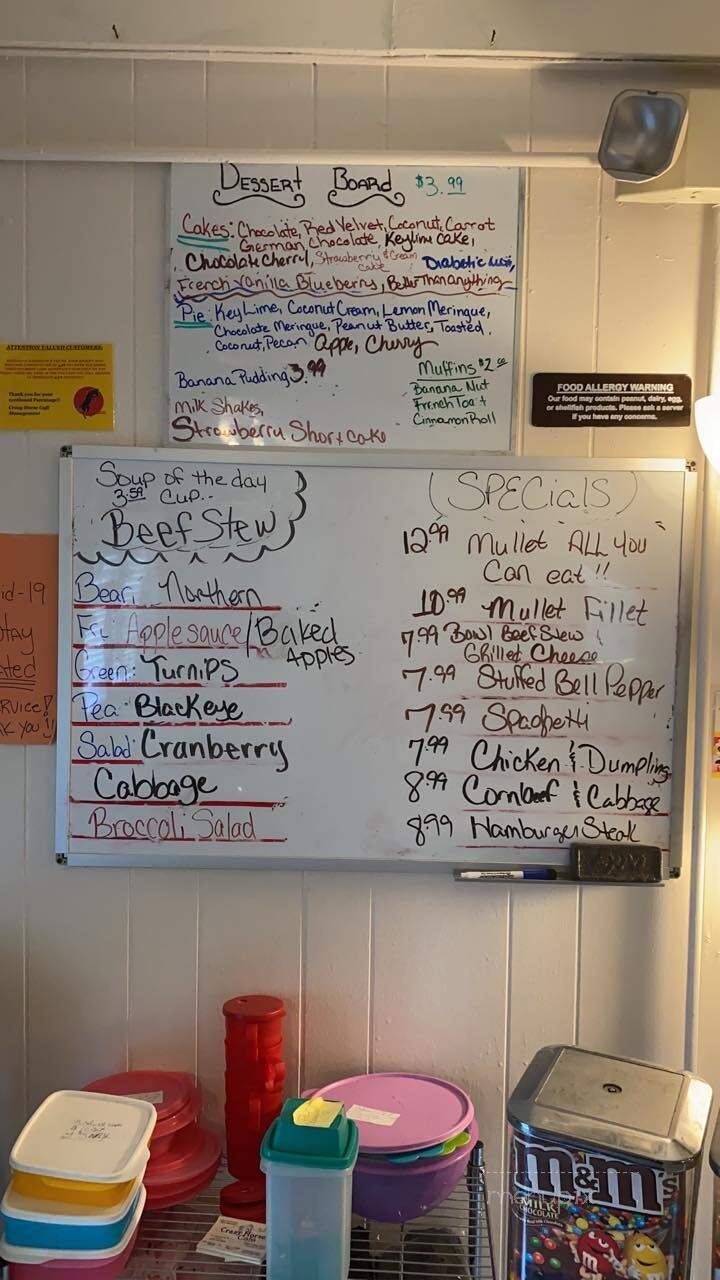 DESSERT BOARD $3.99
Cakes: Chocolate, Red Velvet, Coconut, Carrot
German Chocolate, Key Lime Cake,
Chocolate Cherry, Strawberry & Cream
Cake
Diabetic
French Vanilla Blueberry, Better Than Anything
Pie: Key Lime, Coconut Cream, Lemon Meringue,
Chocolate Meringue, Peanut Butter, Toasted
Coconut, Pecan Apple, Cherry
Banana Pudding 3.99
Muffins $2.50
Banana Nut
French Toast
Cinnamon Roll
Milk Shakes,
Strawberry Short cake
ATTENTION VALUED CUSTOMERS:
Thank you for your
continued Patronage!!
Crazy Horse Café
Management
FOOD ALLERGY WARNING
Our food may contain peanut, dairy, egg,
or shellfish products. Please ask a server
if you have any concerns.
id-19
Soup of the day
3.59 Cup..
Beef Stew
Bean: Northern
Fri: Applesauce/Baked
Apples
Green: Turnips
Pea: Blackeye
Salad: Cranberry
Cabbage
Broccoli Salad
(SPECIALS)
12.99 Mullet "ALL YOU
Can eat!!"
10.99 Mullet Fillet
7.99 Bowl Beef Stew &
Grilled Cheese
7.99 Stuffed Bell Pepper
7.99 Spaghetti
7.99 Chicken & Dumpling
8.99 Cornbeef & Cabbage
8.99 Hamburger Steak
Crazy Horse
Cafe
m&m's
MILK
CHOCOLATE
menupix